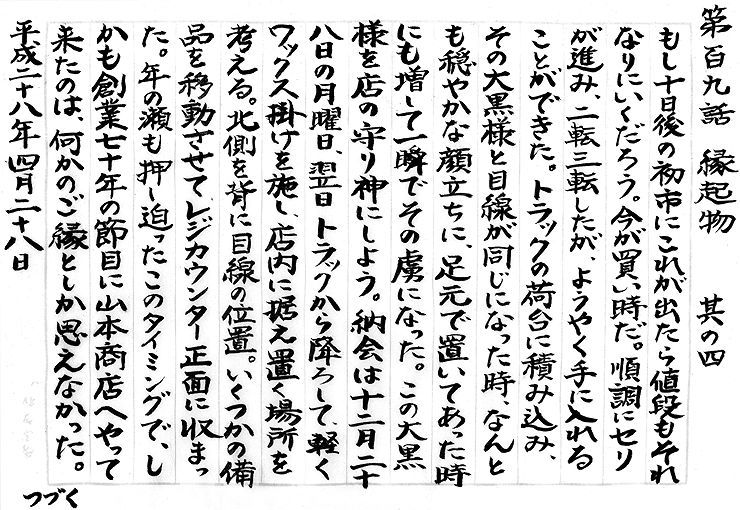 第百九話 縁起物 其の四
もし十日後の初市にこれが出たら値段もそれ
なりにいくだろう。今が買い時だ。順調にセリ
が進み、二転三転したが、ようやく手に入れる
ことができた。トラックの荷台に積み込み、
その大黒様と目線が同じになった時、なんと
も穏やかな顔立ちに、足元で置いてあった時
にも増して一瞬でその虜になった。この大黒
様を店の守り神にしよう。納会は十二月二十
八日の月曜日、翌日トラックから降ろして、軽く
ワックス掛けを施し、店内に据え置く場所を
考える。北側を背に目線の位置。いくつかの備
品を移動させて、レジカウンター正面に収まっ
た。年の瀬も押し迫ったこのタイミングで、し
かも創業七十年の節目に山本商店へやって
来たのは、何かのご縁としか思えなかった。
平成二十八年四月二十八日
つづく